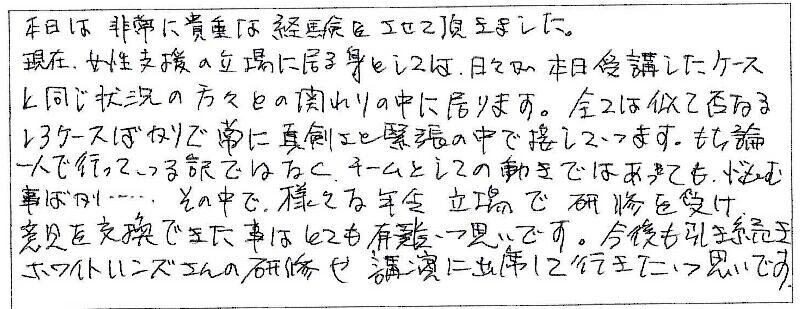 本日は非常に貴重な経験をさせて頂きました。
現在、女性支援の立場に居る身としては、日々が本日受講したケース
と同じ状況の方々との関わりの中に居ります。全ては似て否なる
ケースばかりで常に真剣さと緊張の中で接しています。もち論
一人で行っている訳ではなく、チームとしての動きではあっても、悩む
事ばかり…… その中で、様々な年令 立場で 研修を受け
意見を交換できた事はとても有難い思いです。今後も引き続き
ホワイトハンズさんの研修や 講演に出席して行きたい思いです